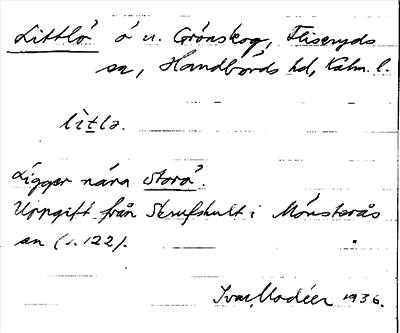 Littlö ö u. Grönskog, Fliseryds
sn, Handbörds hd, Kalm. l.
lìtlə.
Ligger nära Storö.
Uppgift från Skrufshult i Mönsterås
sn (s. 122).
Ivar Modéer 1936.